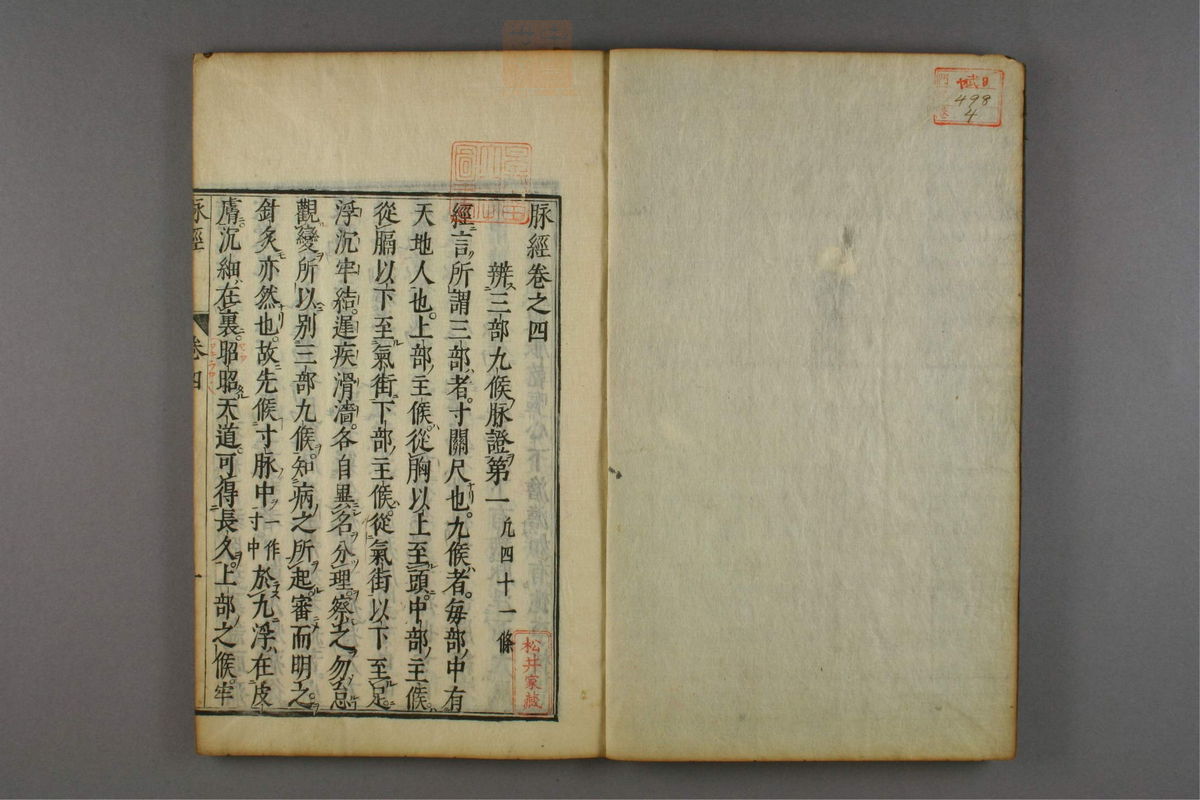 脉經卷之四
辨三部九候脉證第一 凢四十一條
經言所謂三部者。寸關尺也。九候者。每部中有
天地人也。上部主候。從胸以上至頭。中部主候。
從膈以下至氣街。下部主候。從氣街以下至足。
浮沉牢結。遲疾滑濇。各自異名。分理察之。勿怠
觀變。所以別三部九候。知病之所起。審而明之。
針灸亦然也。故先候寸脉中一作寸中於九。浮在皮
膚。沉細在裏。昭昭天道。可得長久。上部之候。牢
脉經 卷四 一
松井家藏
498
4